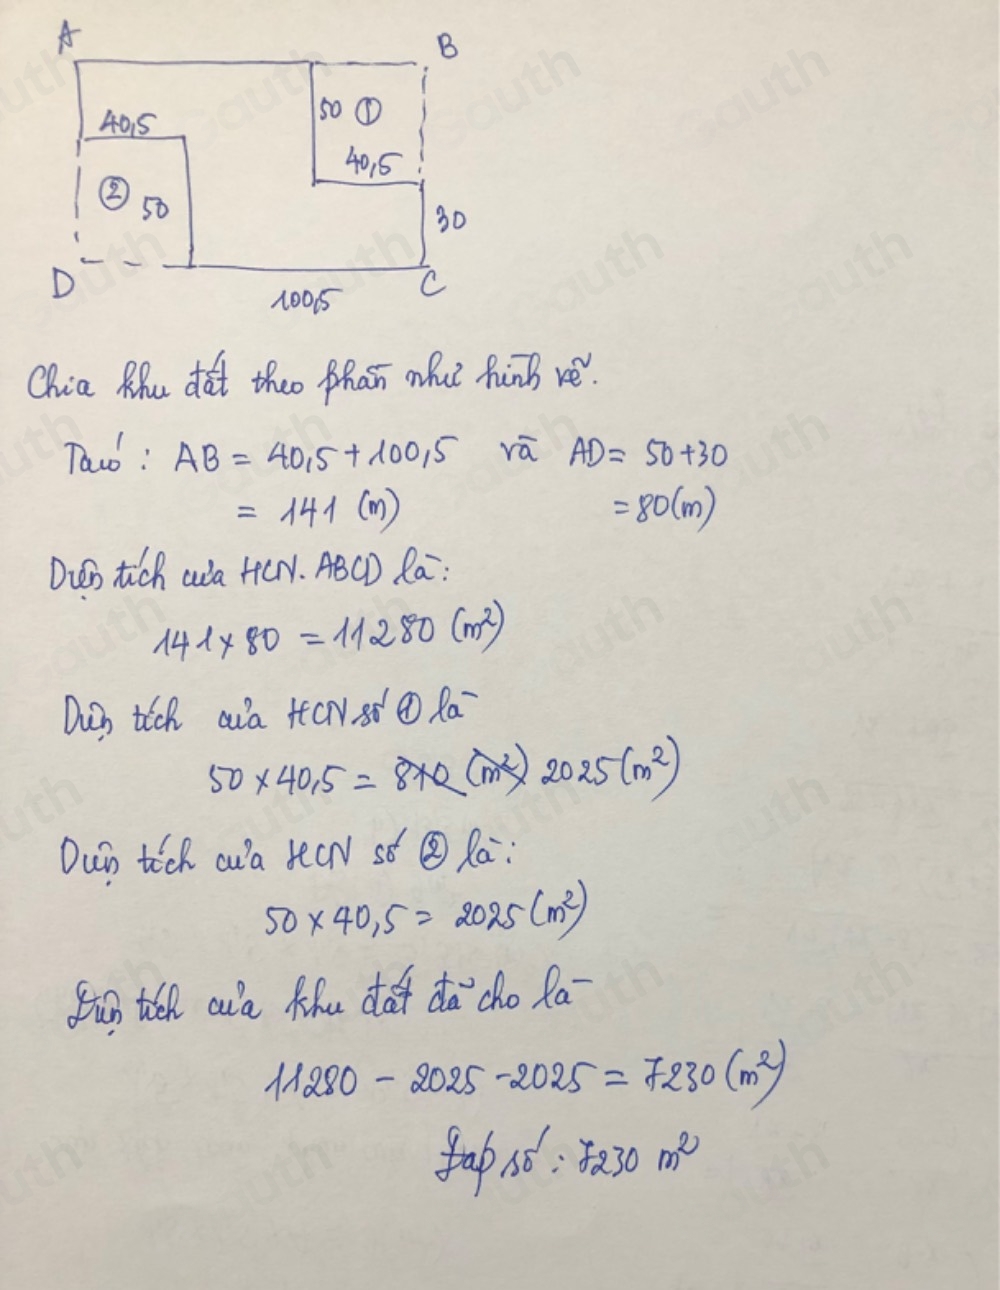 A
B
50 ①
40,5
40,5
② 50
30
D
C
100,5
Chia khu đất theo phần như hình vẽ.
Ta có : AB = 40,5 + 100,5 và AD = 50 + 30
= 141 (m) = 80 (m)
Diện tích của HCN. ABCD là:
141 x 80 = 11280 (m²)
Diện tích của HCN số ① là
50 x 40,5 = 810 (m²) 2025 (m²)
Diện tích của HCN số ② là :
50 x 40,5 = 2025 (m²)
Diện tích của khu đất đã cho là
11280 - 2025 - 2025 = 7230 (m²)
Đáp số : 7230 m²